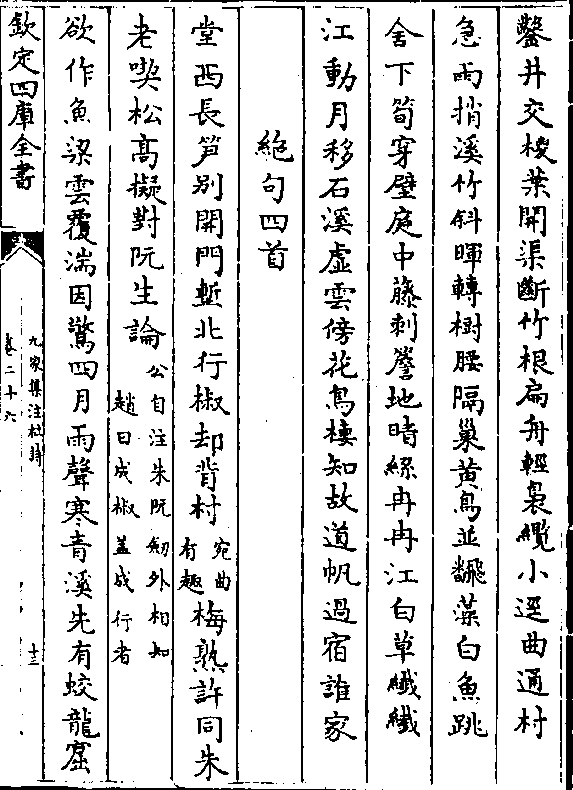 鑿井交椶葉開渠斷竹根扁舟輕裊纜小逕曲通村
急雨捎溪竹斜暉轉樹腰隔巢黄鳥並飜藻白魚跳
舍下筍穿壁庭中藤刺簷地晴絲冉冉江白草纖纖
江動月移石溪虚雲傍花鳥棲知故道帆過宿誰家
絶句四首
堂西長笋别開門塹北行椒却背村宛曲有趣梅熟許同朱
老喫松髙擬對阮生論公自注朱阮劒外相知趙曰成椒蓋成行者
欲作魚梁雲覆湍因驚四月雨聲寒青溪先有蛟龍窟
欽定四庫全書
九家集注杜詩
卷二十六
十三